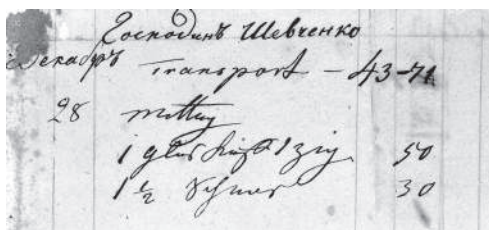 Господинъ Шевченко
Декабръ Transport – 43–71
28 Mittag
1 glas 1 50
1 1/2 30